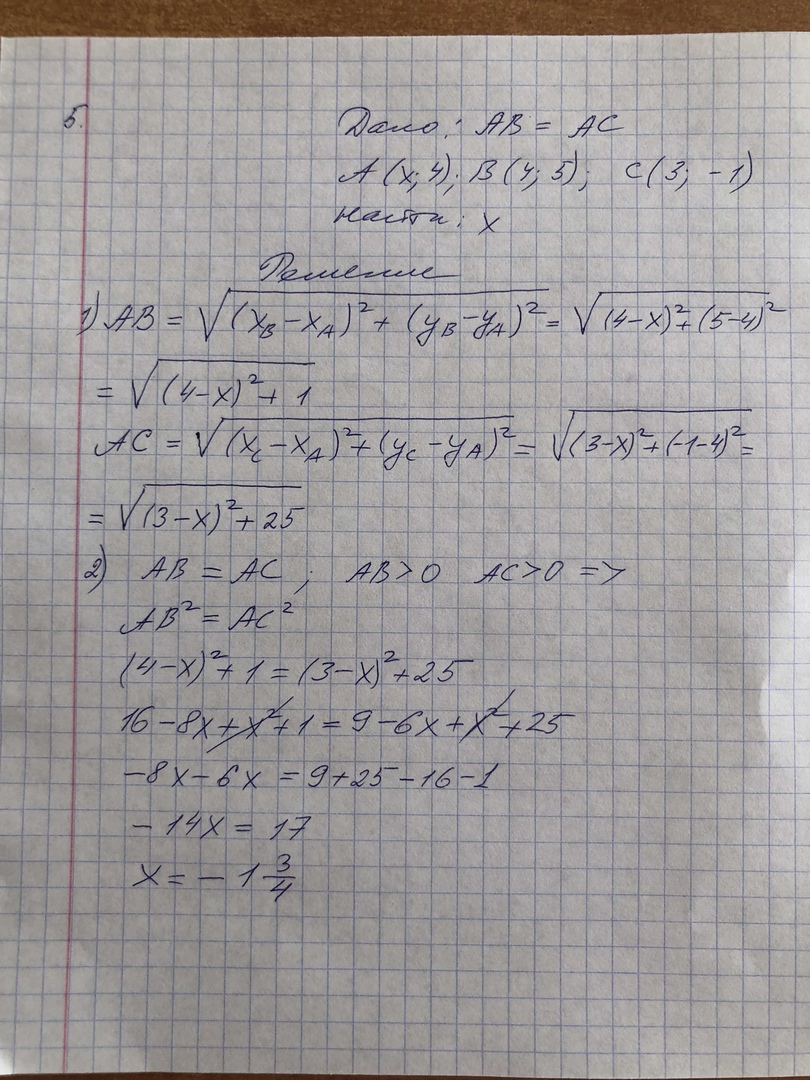 5.
Дано: AB = AC
A (x; 4); B (4; 5); C (3; -1)
Найти: x
Решение
1) AB = √((x_B - x_A)² + (y_B - y_A)²) = √((4-x)² + (5-4)²
= √((4-x)² + 1
AC = √((x_C - x_A)² + (y_C - y_A)²) = √((3-x)² + (-1-4)² =
= √((3-x)² + 25
2) AB = AC ; AB > 0 AC > 0 =>
AB² = AC²
(4-x)² + 1 = (3-x)² + 25
16 - 8x + x² + 1 = 9 - 6x + x² + 25
-8x - 6x = 9 + 25 - 16 - 1
- 14x = 17
x = - 1 3/4